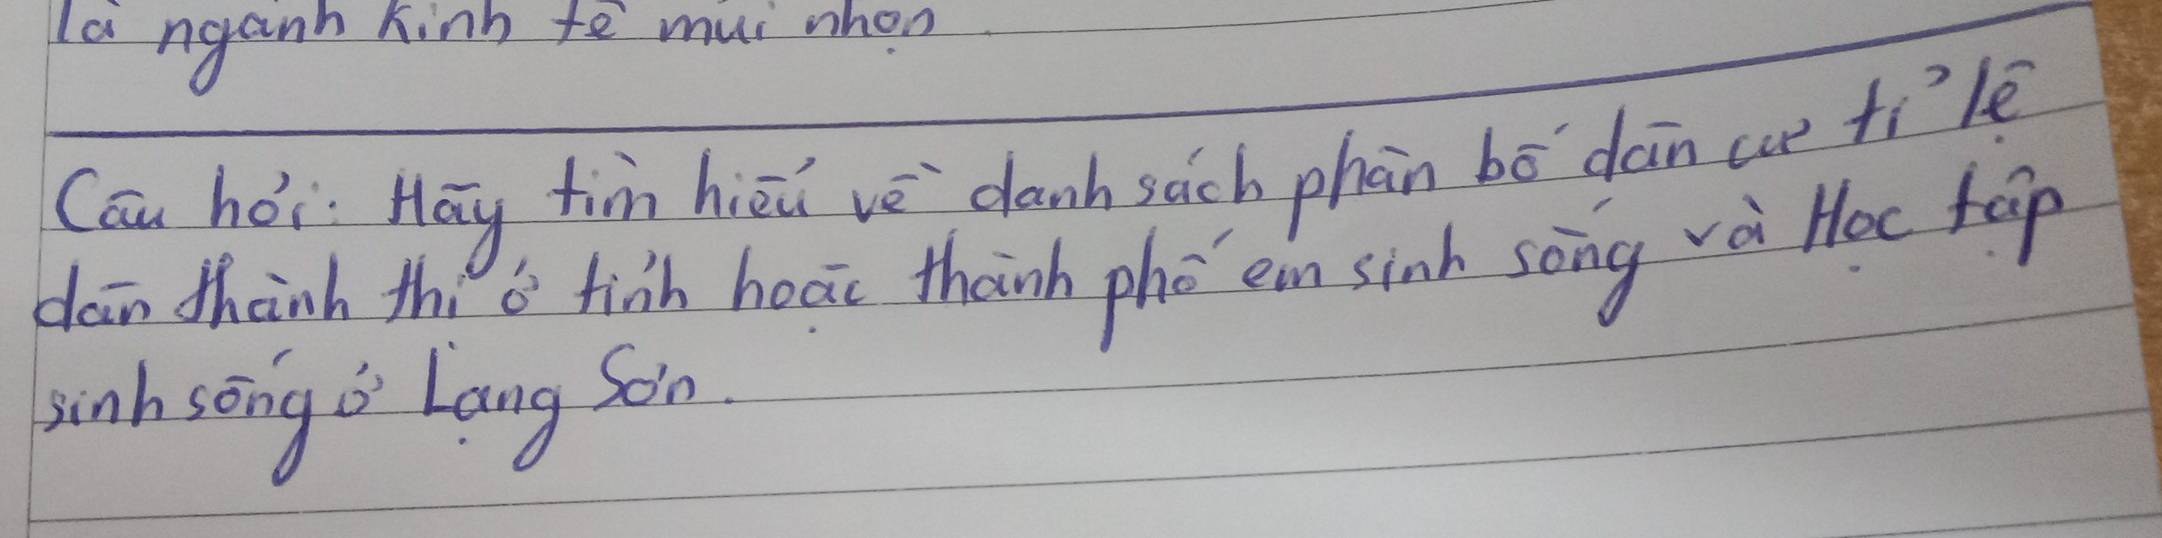 là ngành kinh tế mũi nhọn.
Câu hỏi: Hãy tìm hiểu về danh sách phân bố dân cư tỉ lệ
dân thành thị ở tỉnh hoặc thành phố em sinh sống và Học tập
sinh sống ở Lạng Sơn.